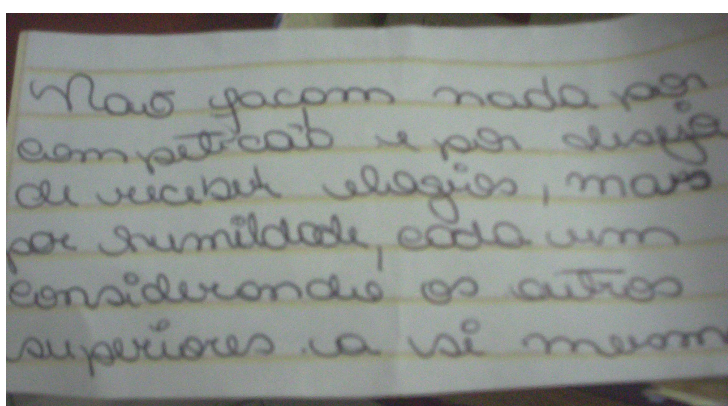 Não façam nada por
competição e por desejo
de receber elogios, mas
por humildade, cada um
considerando os outros
superiores a si mesm